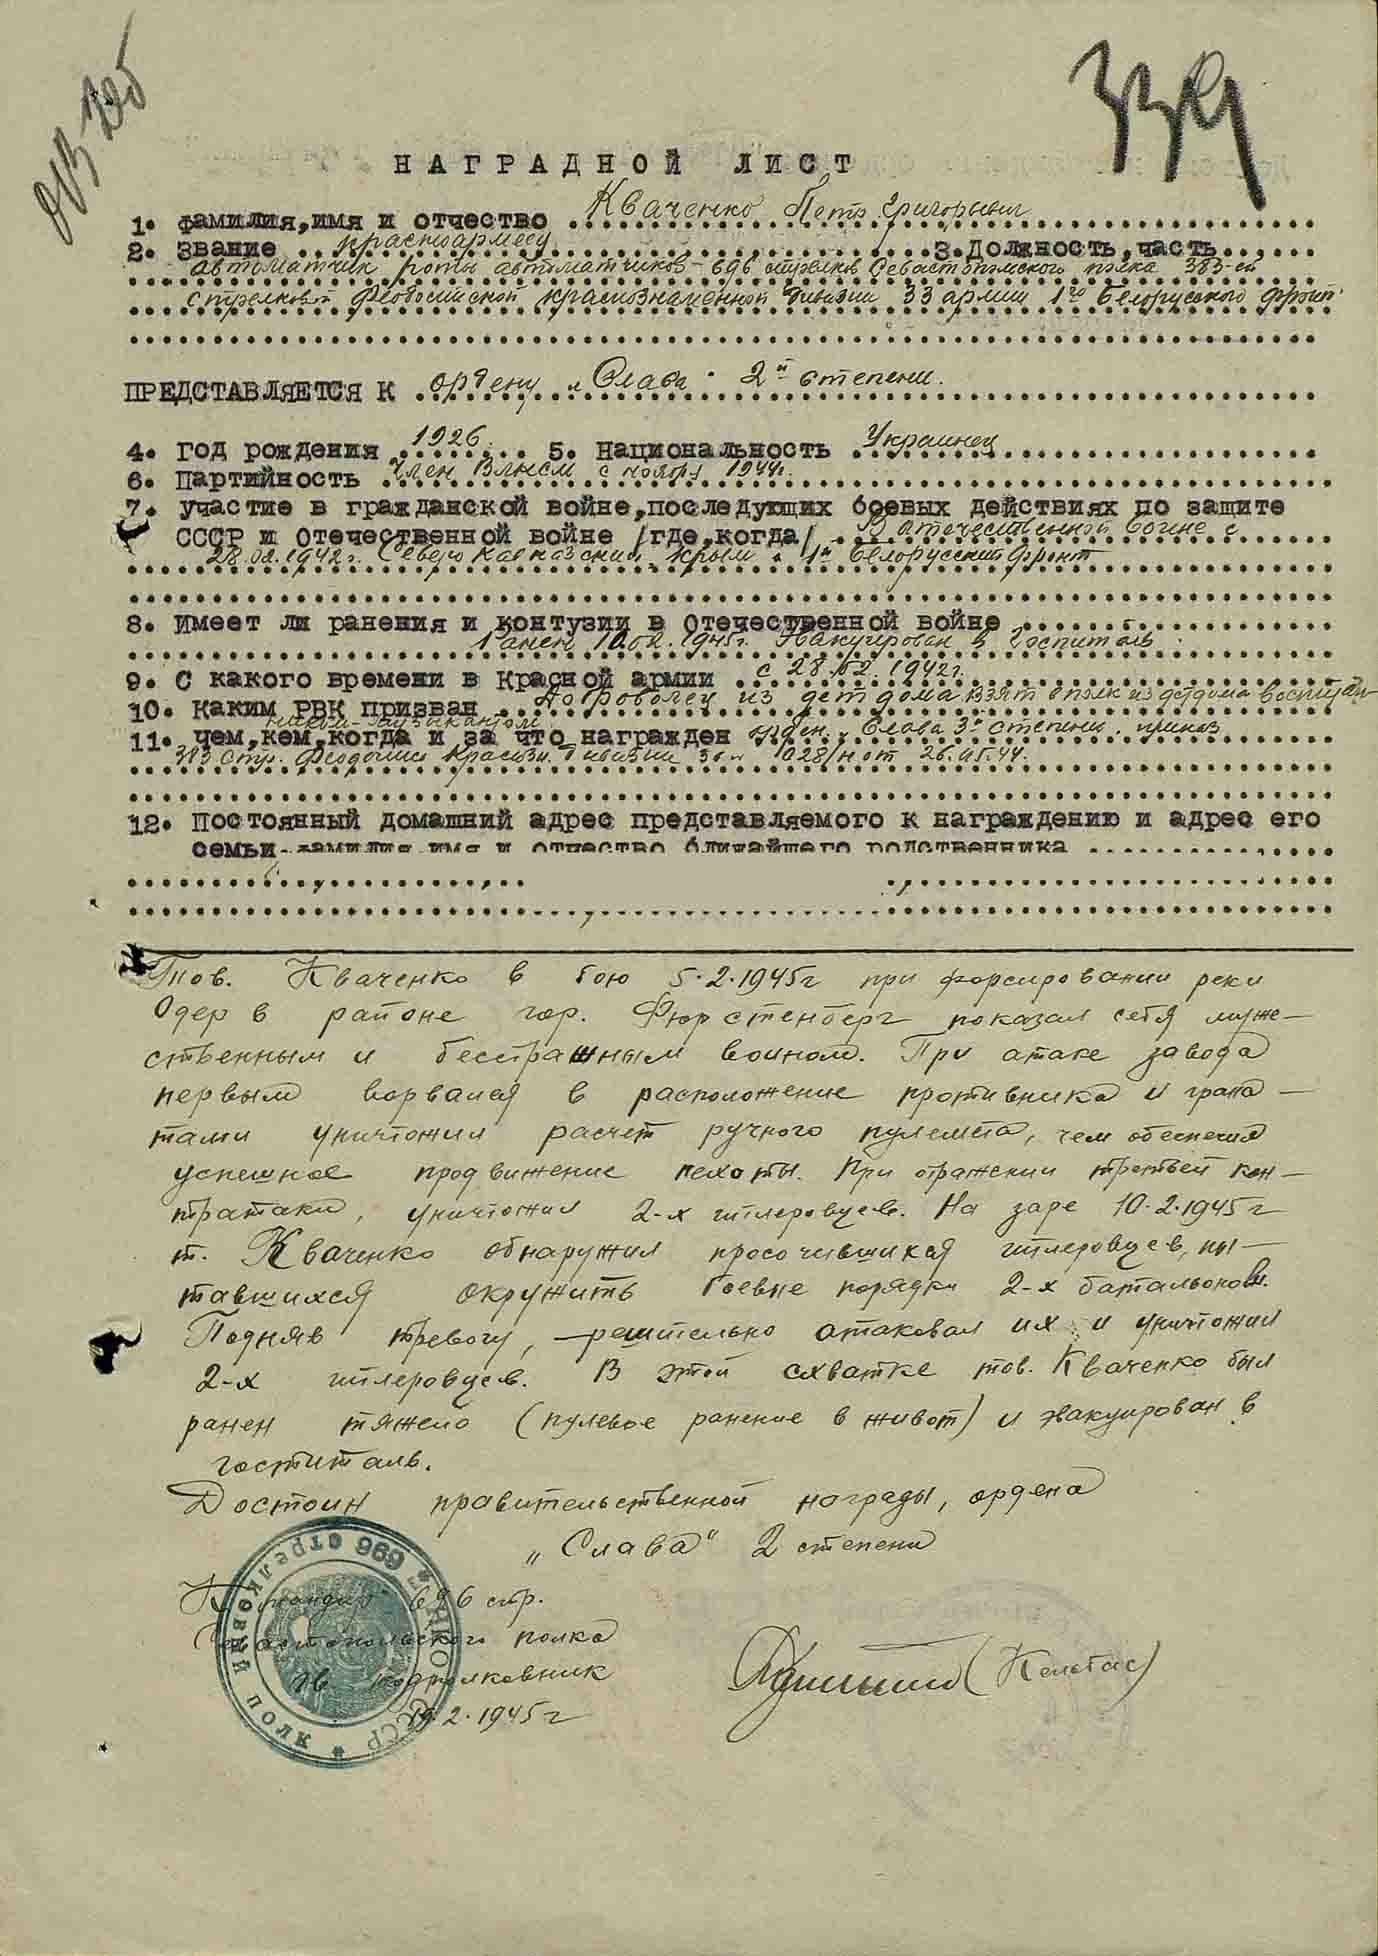 339
НАГРАДНОЙ ЛИСТ
1. Фамилия, имя и отчество Кваченко Петр Григорьевич
2. Звание красноармеец 3. Должность, часть
автоматчик роты автоматчиков - 696 стрелков. Севастопольского полка 383-ей
стрелковой Феодосийской краснознаменной дивизии 33 армии 1го Белорусского фронт.
ПРЕДСТАВЛЯЕТСЯ К ордену „Слава" 2й степени.
4. Год рождения 1926. 5. Национальность Украинец
6. Партийность Член ВЛКСМ с ноября 1944г.
7. Участие в гражданской войне, последующих боевых действиях по защите
СССР и Отечественной войне /где, когда/ В отечественной войне с
28.02.1942г. Северо Кавказский, Крым и 1й Белорусский фронт
8. Имеет ли ранения и контузии в Отечественной войне
Ранен 10.02.1945г. Эвакуирован в госпиталь.
9. С какого времени в Красной армии с 28.02.1942г.
10. Каким РВК призван Доброволец из детдома взят в полк из детдома воспитан-
ником-музыкантом
11. Чем, кем, когда и за что награжден орден „Слава 3й степени. приказ
383 стр. Феодосий Красн. дивизии 028/н от 26.05.44.
12. Постоянный домашний адрес представляемого к награждению и адрес его
семьи фамилия имя и отчество ближайшего родственника
Тов. Кваченко в бою 5.2.1945г при форсировании реки
Одер в районе гор. Фюрстенберг показал себя муже-
ственным и бесстрашным воином. При атаке завода
первым ворвался в расположение противника и грана-
тами уничтожил расчет ручного пулемета, чем обеспечил
успешное продвижение пехоты. При отражении третьей кон-
тратаки, уничтожил 2-х гитлеровцев. На заре 10.2.1945г
т. Кваченко обнаружил просочившихся гитлеровцев, пы-
тавшихся окружить боевые порядки 2-х батальонов.
Подняв тревогу, решительно атаковал их и уничтожил
2-х гитлеровцев. В этой схватке тов. Кваченко был
ранен тяжело (пулевое ранение в живот) и эвакуирован в
госпиталь.
Достоин правительственной награды, ордена
„Слава" 2 степени
Командир 696 стр.
Севастопольского полка
Гв подполковник
19.2.1945г
НКО СССР * 696 стрелковый полк *